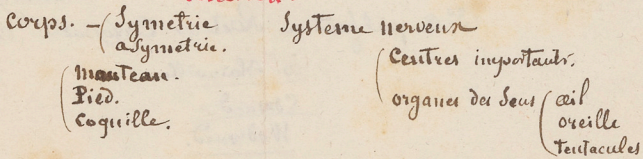 Corps. - Symetrie
asymétrie.
Manteau.
Pied.
Coquille.
Système nerveux
Centres importants.
organes des Sens
œil
oreille
tentacules